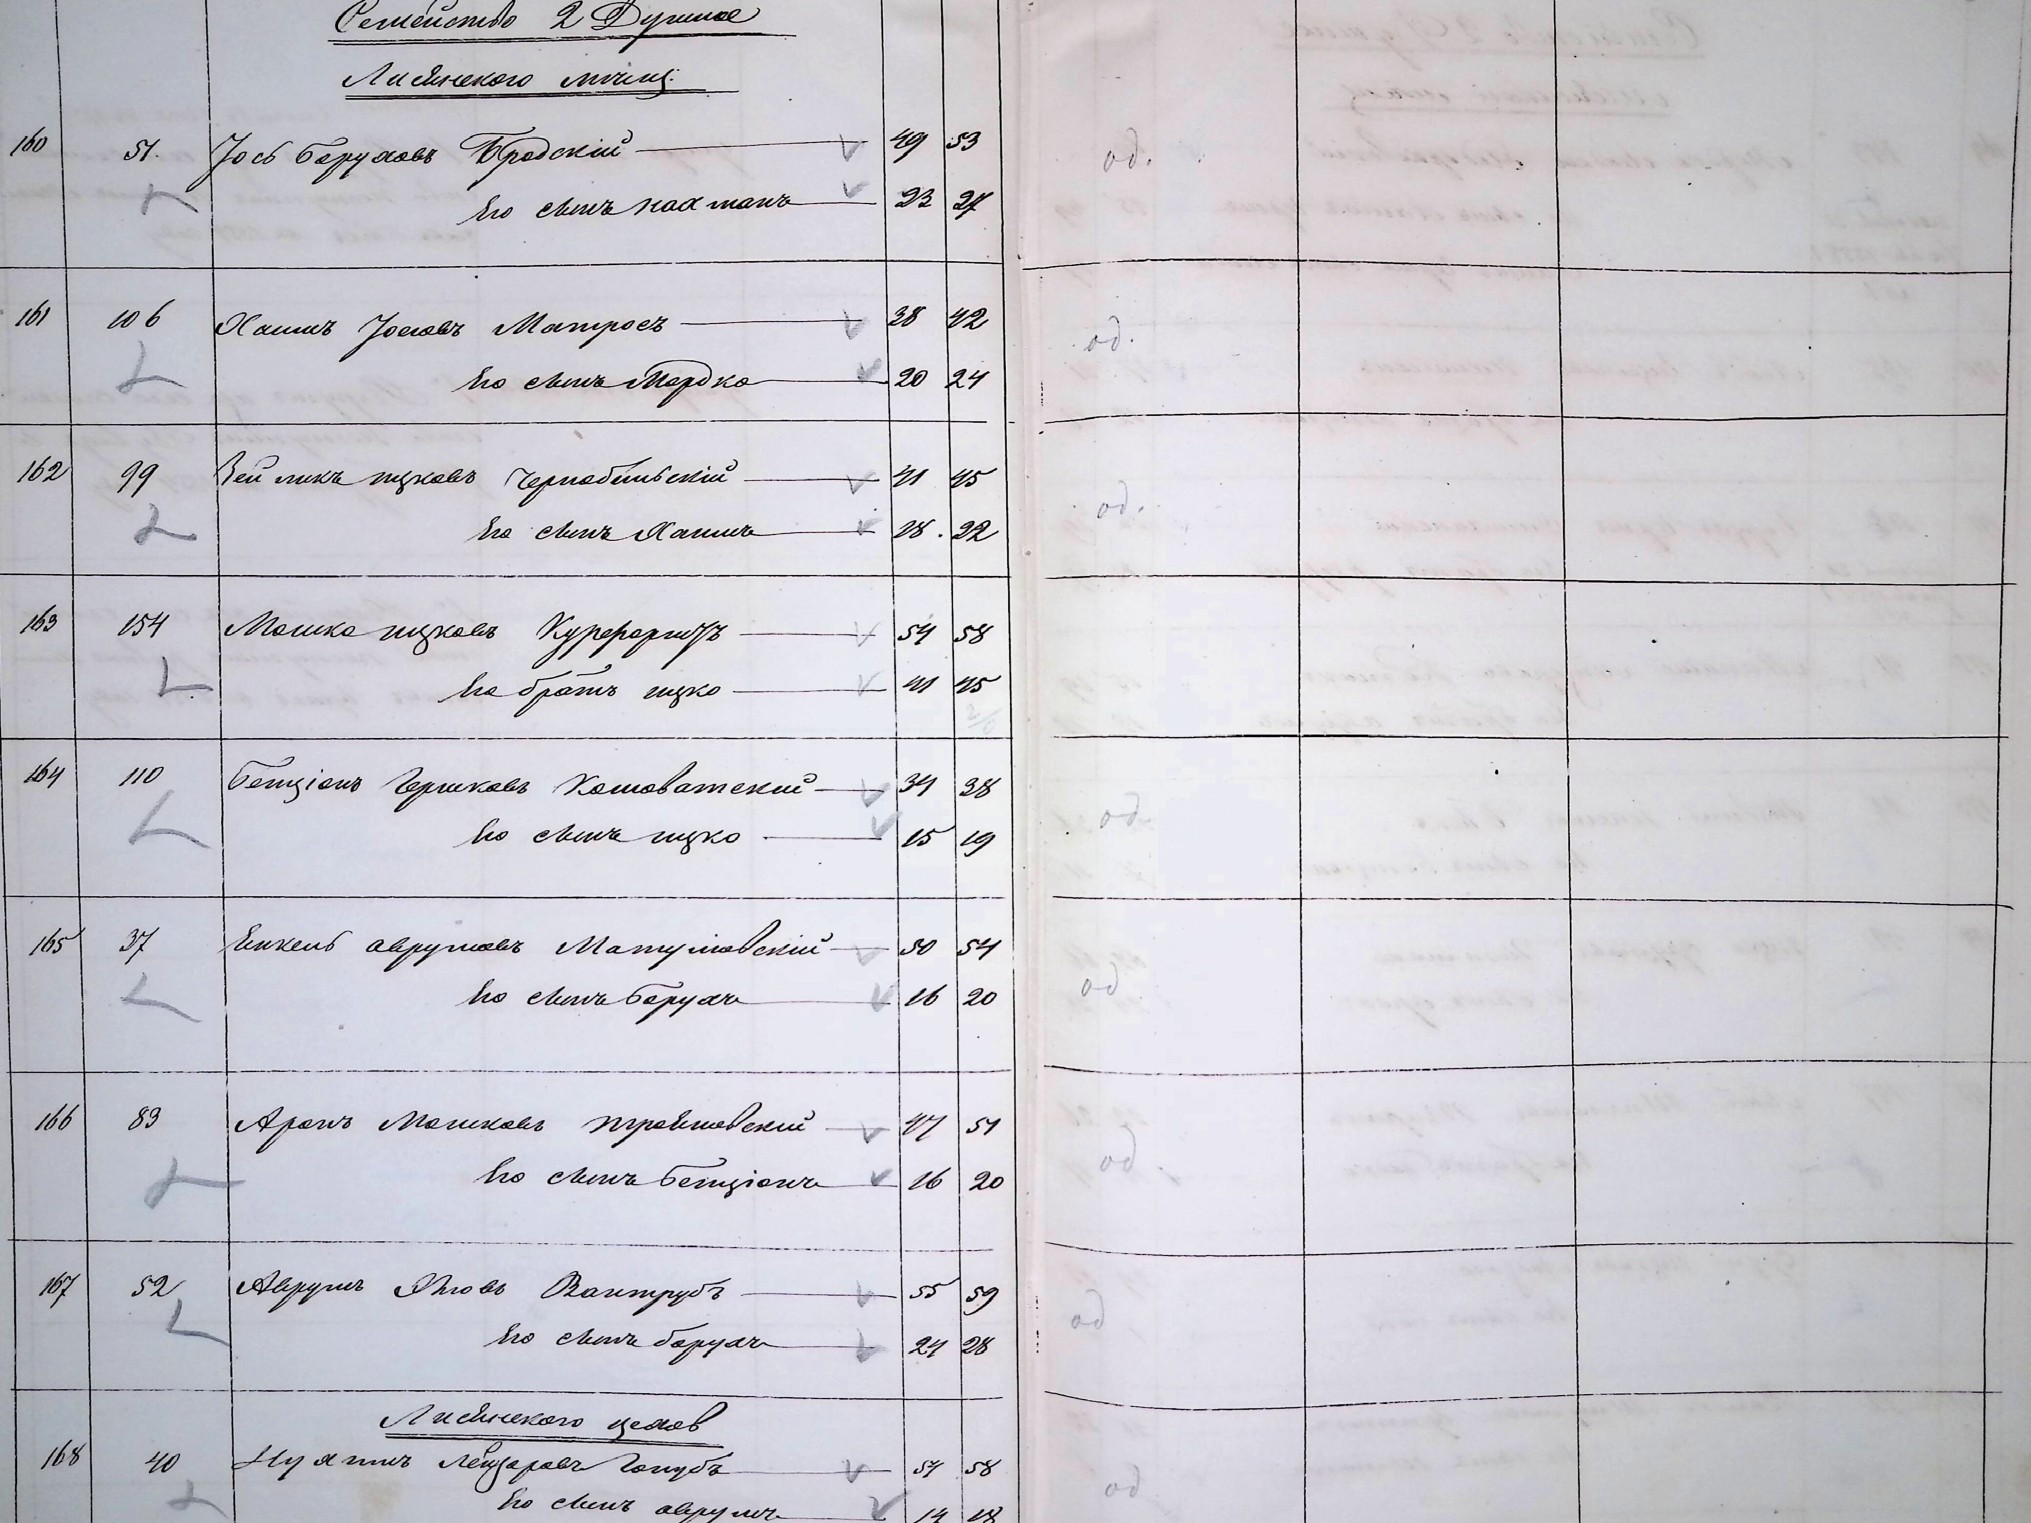 Семейство 2 Душное
Лисянского мѣщ.
160 51. Іось Баруховъ Бродскій 49 53 од.
Его сынъ Нахманъ 23 27
161 106 Хаимъ Іосіовъ Матросъ 38 42 од.
Его сынъ Мордко 20 24
162 99 Зейликъ Ицковъ Чернобильскій 41 45 од.
Его сынъ Хаимъ 18. 22
163 154 Мошко Ицковъ 54 58
Его братъ Ицко 41 45
164 110 Бенціонъ Гершковъ Кошоватскій 34 38 од.
Его сынъ Ицко 15 19
165 37 Янкель Аврумовъ Матусовскій 50 54 од
Его сынъ Барухъ 16 20
166 83 Аронъ Мошковъ 47 51 од
Его сынъ Бенціонъ 16 20
167 52 Аврумъ Вантрубъ 55 59 од
Его сынъ Барухъ 24 28
Лисянского цехов
168 40 Нухимъ Лейзоровъ Голубъ 54 58 од
Его сынъ Аврумъ 14 18